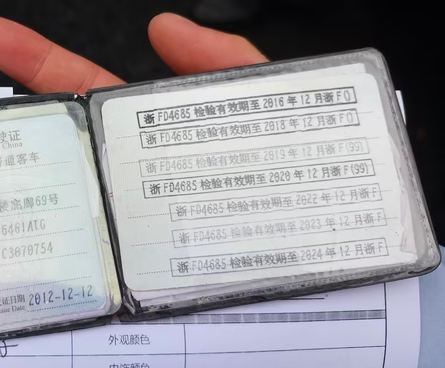 驶证
China
普通客车
69号
6461ATG
C3070754
证日期 2012-12-12
sue Date
浙 FD4685 检验有效期至 2016 年 12 月浙 F()
浙 FD4685 检验有效期至 2018 年 12 月浙 F()
浙 FD4685 检验有效期至 2019 年 12 月浙 F(99)
浙 FD4685 检验有效期至 2020 年 12 月浙 F(99)
浙 FD4685 检验有效期至 2022 年 12 月浙 F
浙 FD4685 检验有效期至 2023 年 12 月浙 F
浙 FD4685 检验有效期至 2024 年 12 月浙 F
外观颜色
内饰颜色